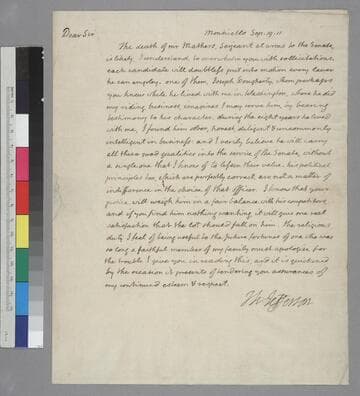 Dear Sir
Monticello Sep. 19. 11
The death of mr Mathers, Serjeant at arms to the Senate,
is likely, I understand, to overwhelm you with sollicitations.
each candidate will doubtless put into motion every lever
he can employ. one of them, Joseph Dougherty, whom perhaps
you knew while he lived with me in Washington, where he did
my riding business, imagines I may serve him, by bearing
testimony to his character. during the eight years he lived
with me, I found him sober, honest, diligent & uncommonly
intelligent in business. and I verily believe he will carry
all these good qualities into the service of the Senate, without
a single one that I know of to lessen their value. his political
principles too, which are perfectly correct, are not a matter of
indifference in the choice of that officer. I know that your
justice will weigh him in a fair balance with his competitors,
and if you find him nothing wanting, it will give me real
satisfaction that the lot should fall on him. the religious
duty I feel of being useful to the future fortunes of one who was
so long a faithful member of my family must apologise for
the trouble I give you in reading this, and it is quickened
by the occasion it presents of tendering you assurances of
my continued esteem & respect.
Th: Jefferson